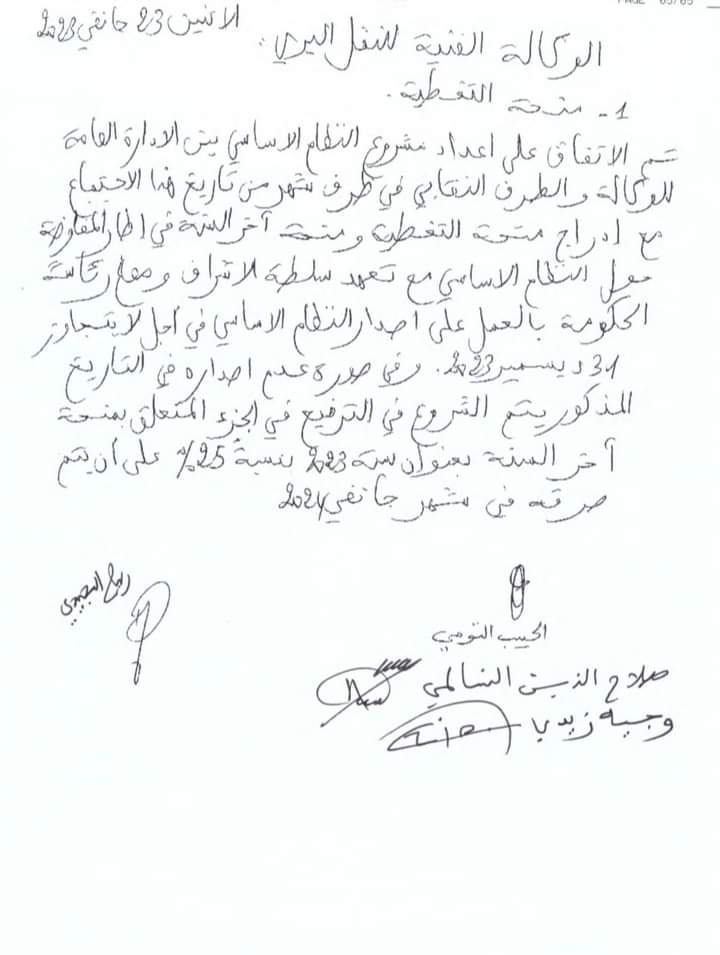 PAGE 03/05
الاثنين 23 جانفي 2023
الوكالة الفنية للنقل البري:
1- منحة التغطية.
تم الاتفاق على اعداد مشروع النظام الاساسي بين الادارة العامة
للوكالة والطرف النقابي في ظرف شهر من تاريخ هذا الاجتماع
مع إدراج منحة التغطية ومنحة آخر السنة في إطار المفاوضة
حول النظام الاساسي مع تعهد سلطة الاشراف ومصالح رئاسة
الحكومة بالعمل على اصدار النظام الاساسي في أجل لا يتجاوز
31 ديسمبر 2023. وفي صورة عدم اصداره في التاريخ
المذكور يتم الشروع في الترفيع في الجزء المتعلق بمنحة
آخر السنة بعنوان سنة 2023 بنسبة 25% على أن يتم
صرفه في شهر جانفي 2024
الحبيب التومي
صلاح الدين السالمي
وجيه زيدي